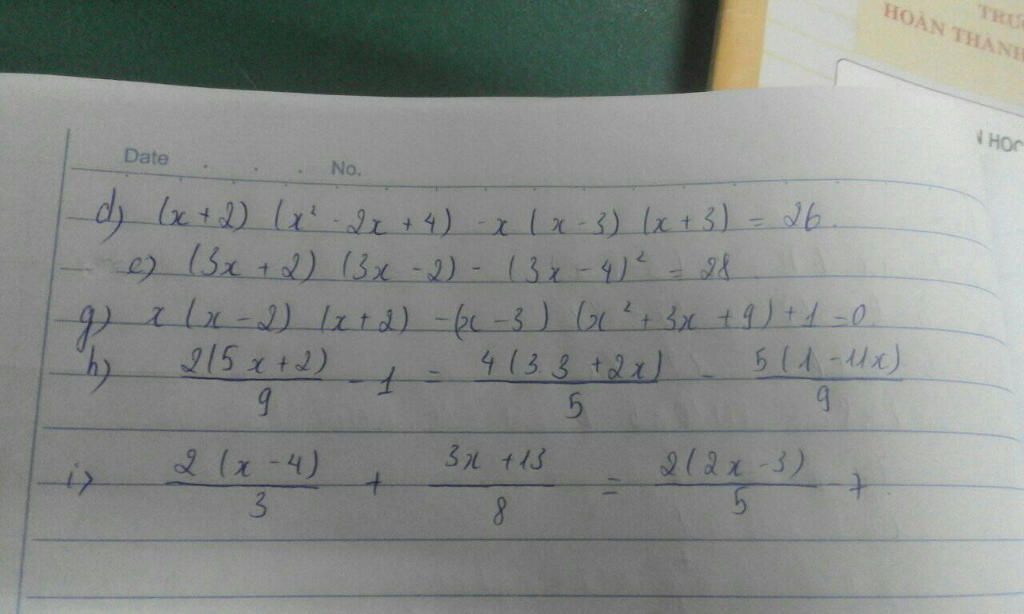 TRƯ
HOÀN THÀNH
N HỌC
Date . . . No.
d) (x+2) (x² - 2x + 4) - x (x - 3) (x + 3) = 26.
e) (3x + 2) (3x - 2) - (3x - 4)² = 28
g) x (x - 2) (x + 2) - (x - 3) (x² + 3x + 9) + 1 = 0
h) 2(5x + 2)/9 - 1 = 4(3.3 + 2x)/5 - 5(1 - 11x)/9
i) 2(x - 4)/3 + 3x + 13/8 = 2(2x - 3)/5 +